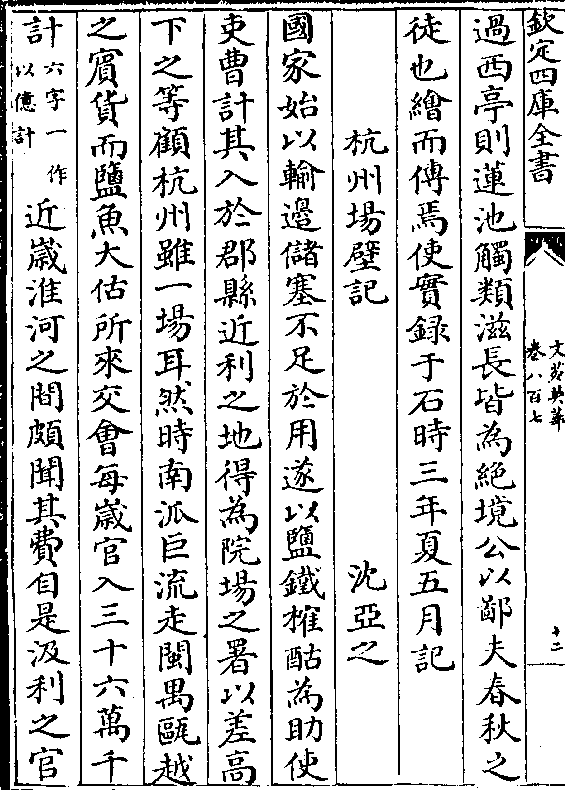 欽定四庫全書
文苑英華
卷八百七
十二
過西亭則蓮池觸類滋長皆為絶境公以鄙夫春秋之
徒也繪而傅焉使實録于石時三年夏五月記
杭州場壁記
沈亞之
國家始以輸邉儲塞不足於用遂以鹽鐵榷酤為助使
吏曹計其入於郡縣近利之地得為院場之署以差高
下之等顧杭州雖一場耳然時南派巨流走閩禺甌越
之賓貨而鹽魚大估所來交會每嵗官入三十六萬千
計六字一作以億計近嵗淮河之間頗聞其費自是汲利之官